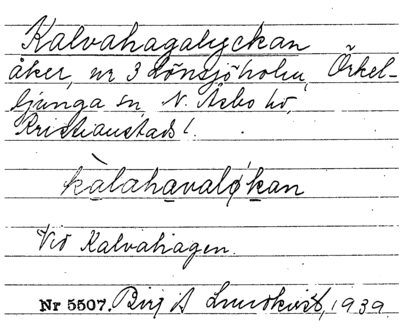 Kalvahagalyckan
åker, nr 3 Lönsjöholm, Örkel-
ljunga sn N. Åsbo hd,
Kristianstads l.
kàlahavalýkan
Vid Kalvahagen.
Nr 5507. Birg A Lundkvist, 1939